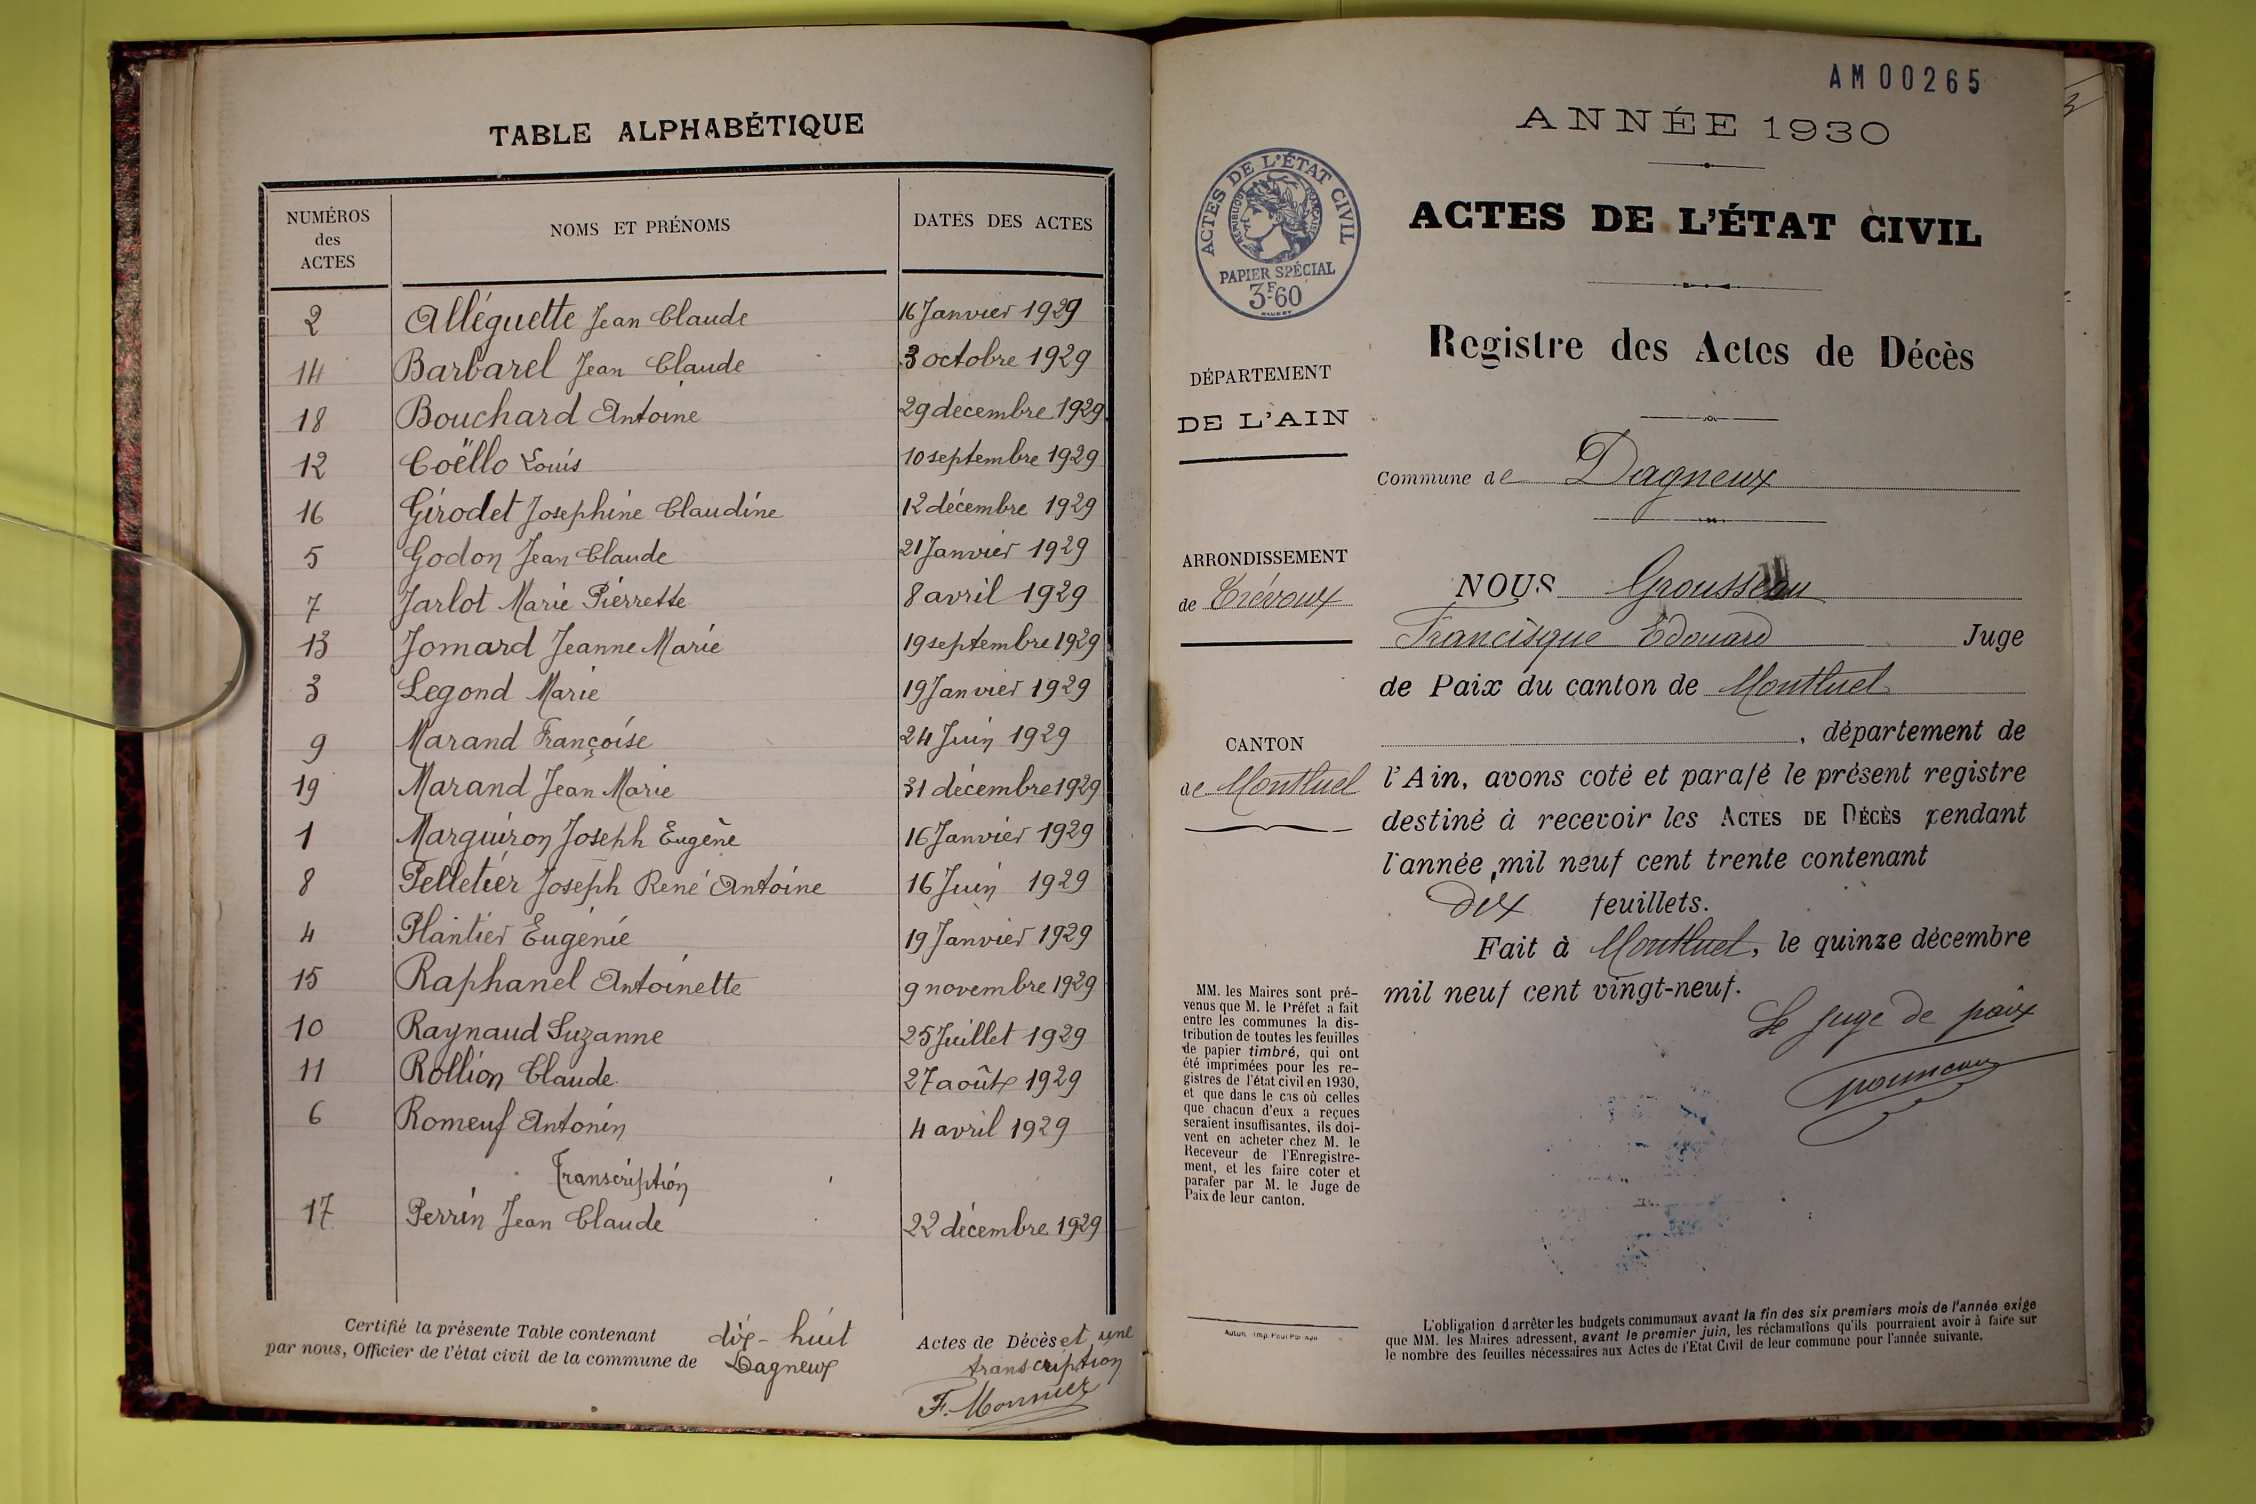 TABLE ALPHABÉTIQUE
NUMÉROS des ACTES NOMS ET PRÉNOMS DATES DES ACTES
2 Alléguette Jean Claude 16 Janvier 1929
14 Barbarel Jean Claude 3 octobre 1929
18 Bouchard Antoine 29 décembre 1929
12 Coëllo Louis 10 septembre 1929
16 Girodet Josephine Claudine 12 décembre 1929
5 Godon Jean Claude 21 Janvier 1929
7 Jarlot Marie Pierrette 8 avril 1929
13 Jomard Jeanne Marie 19 septembre 1929
3 Legond Marie 19 Janvier 1929
9 Marand Françoise 24 Juin 1929
19 Marand Jean Marie 31 décembre 1929
1 Marguiron Joseph Eugène 16 Janvier 1929
8 Pelletier Joseph René Antoine 16 Juin 1929
4 Plantier Eugénie 19 Janvier 1929
15 Raphanel Antoinette 9 novembre 1929
10 Raynaud Suzanne 25 Juillet 1929
11 Rollion Claude 27 août 1929
6 Romeuf Antonin 4 avril 1929
Transcription
17 Perrin Jean Claude 22 décembre 1929
Certifié la présente Table contenant dix-huit Actes de Décès et une
transcription
par nous, Officier de l'état civil de la commune de Dagneux
F. Monnier
AM00265
ANNÉE 1930
ACTES DE L'ÉTAT CIVIL
RÉPUBLIQUE FRANÇAISE
PAPIER SPÉCIAL
3F60
ACTES DE L'ÉTAT CIVIL
Registre des Actes de Décès
DÉPARTEMENT
DE L'AIN
ARRONDISSEMENT
de Trévoux
CANTON
de Montluel
MM. les Maires sont pré-
venus que M. le Préfet a fait
entre les communes la dis-
tribution de toutes les feuilles
de papier timbré, qui ont
été imprimées pour les re-
gistres de l'état civil en 1930,
et que dans le cas où celles
que chacun d'eux a reçues
seraient insuffisantes, ils doi-
vent en acheter chez M. le
Receveur de l'Enregistre-
ment, et les faire coter et
parafer par M. le Juge de
Paix de leur canton.
Autun. Imp.
Commune de Dagneux
NOUS Grousseau
Francisque Edouard Juge
de Paix du canton de Montluel
, département de
l'Ain, avons coté et parafé le présent registre
destiné à recevoir les ACTES DE DÉCÈS pendant
l'année mil neuf cent trente contenant
dix feuillets.
Fait à Montluel, le quinze décembre
mil neuf cent vingt-neuf.
Le juge de paix
L'obligation d'arrêter les budgets communaux avant la fin des six premiers mois de l'année exige
que MM. les Maires adressent, avant le premier juin, les réclamations qu'ils pourraient avoir à faire sur
le nombre des feuilles nécessaires aux Actes de l'Etat Civil de leur commune pour l'année suivante.